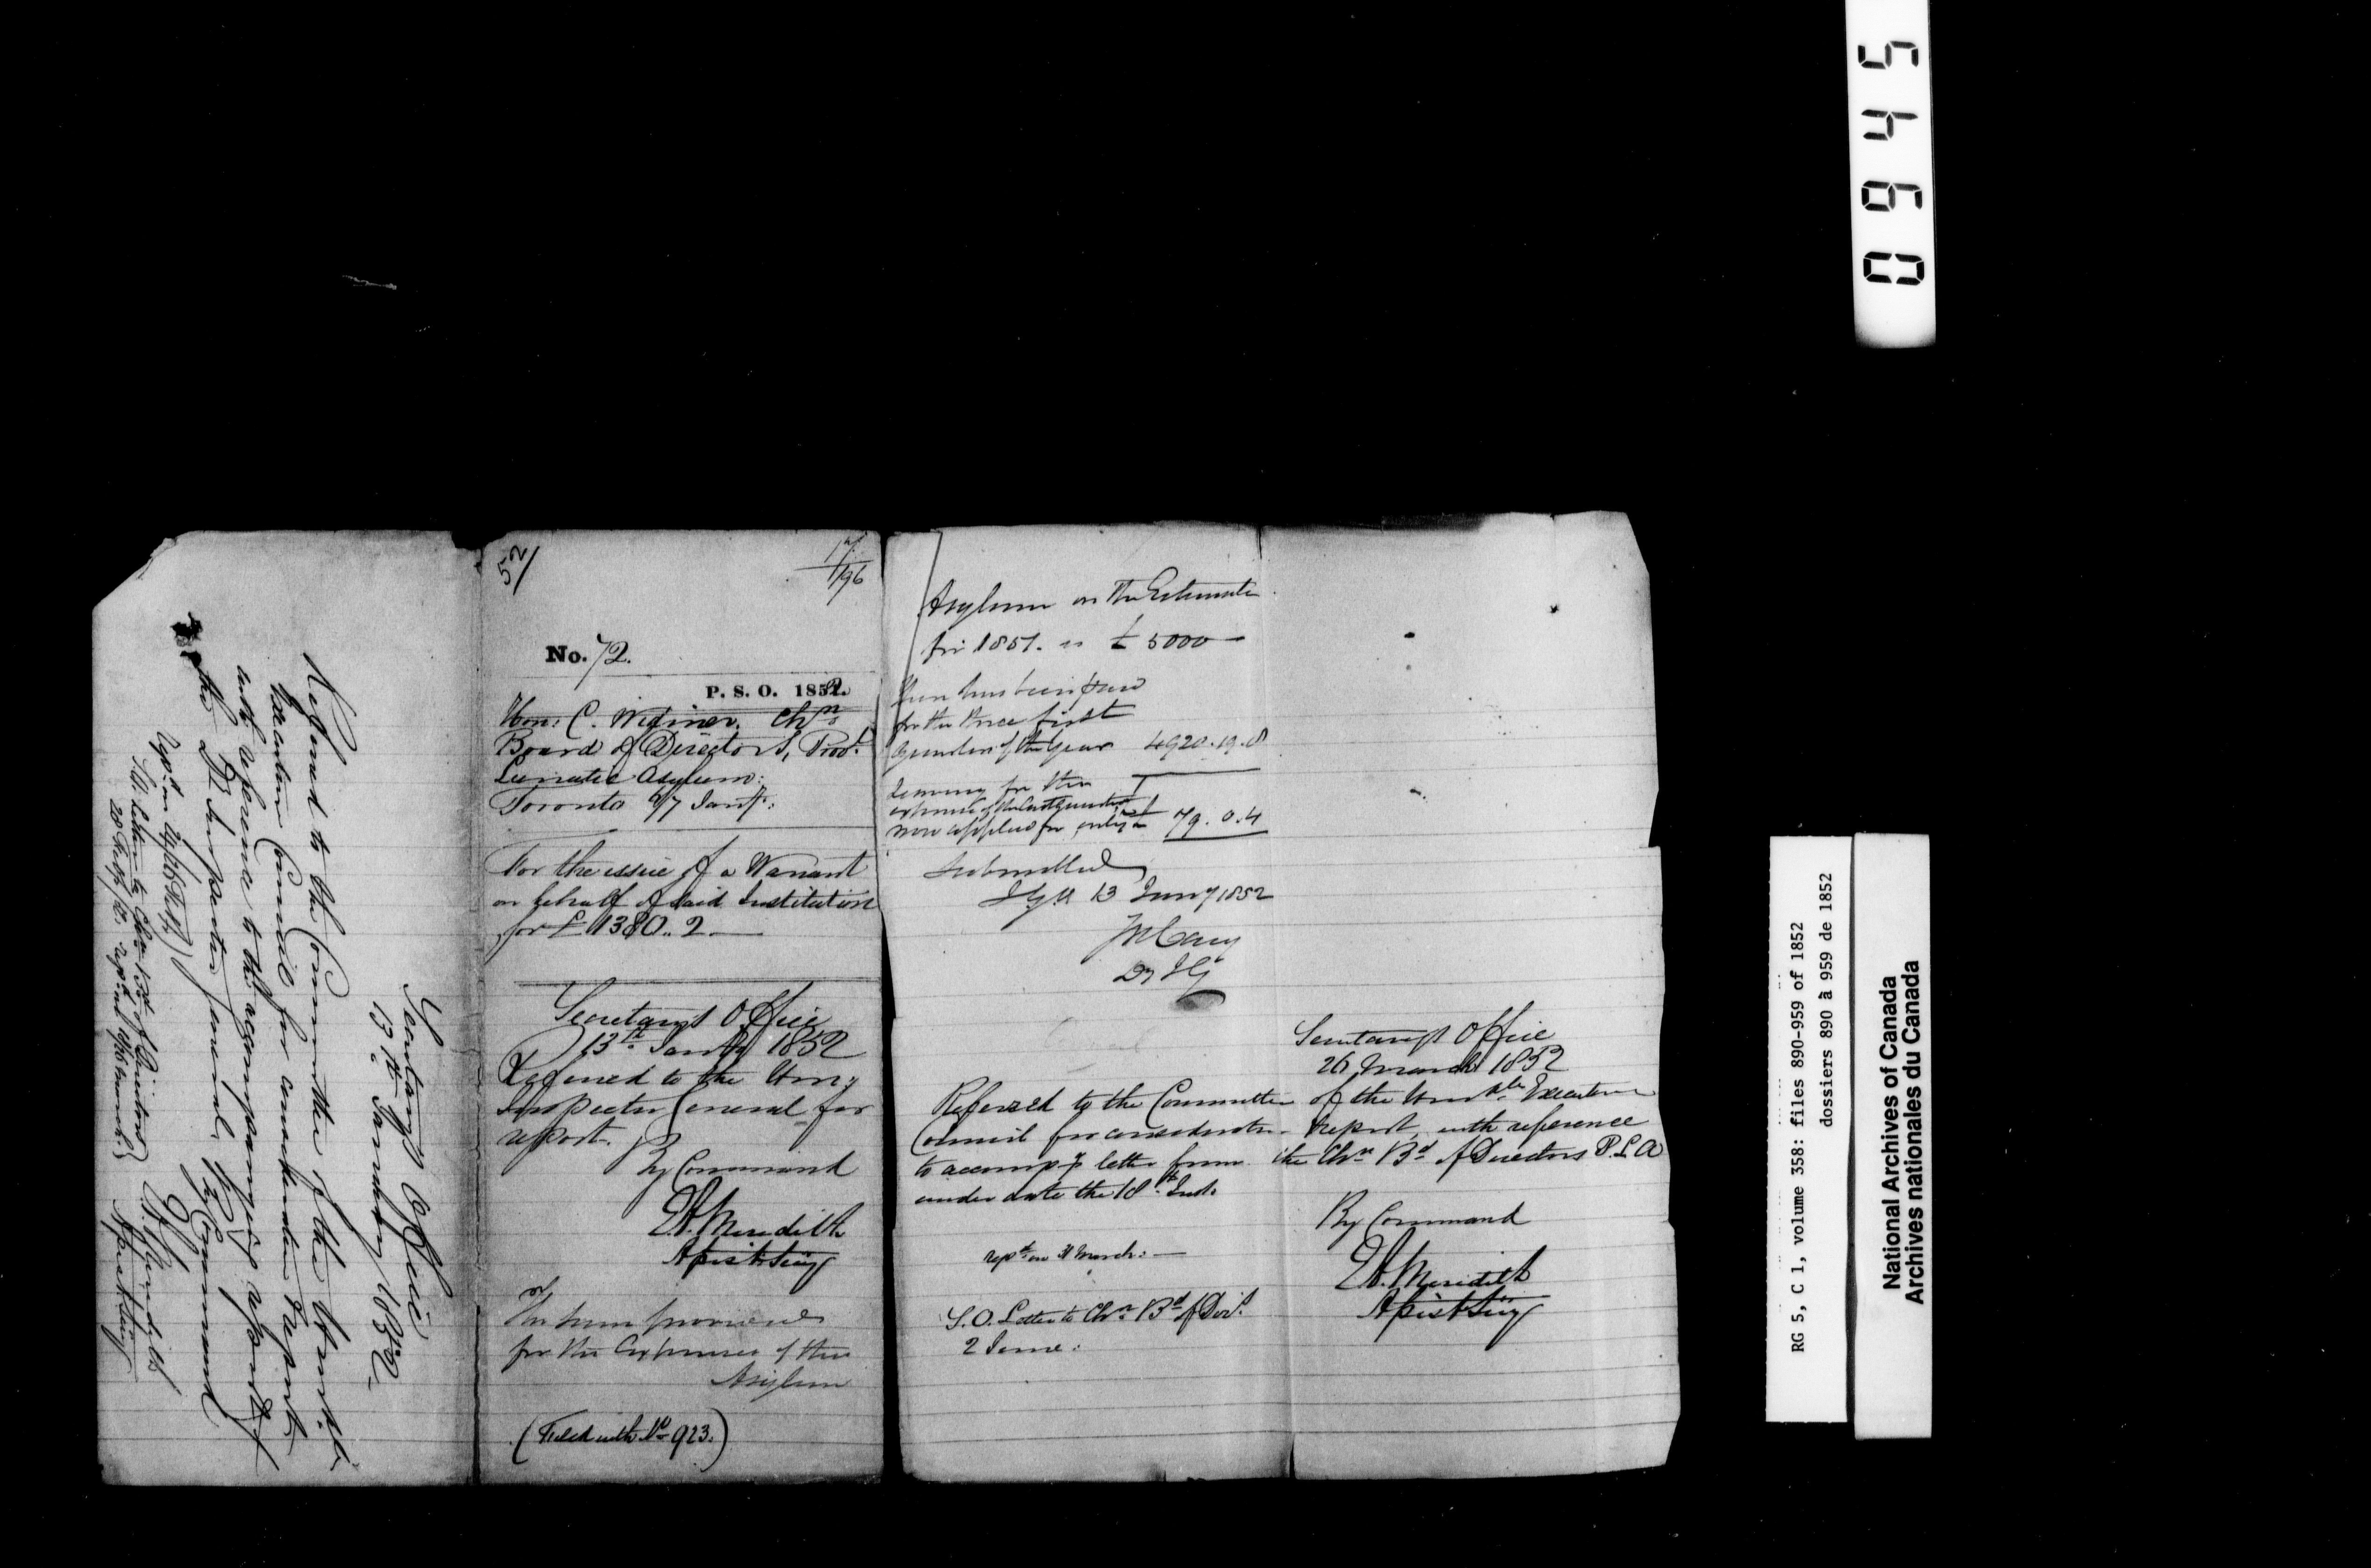 Secretary's Office
13th January 1852
Referred to the Committee of the Honble
Executive Council for consideration & report
with reference to the accompanying report of
the Inspector General
By Command
E. A. Meredith
Asist. Secy
28 Feby
52/
17/196
No. 72.
P. S. O. 1852.
Hon: C. Widmer. Chn
Board of Directors, Provl
Lunatic Asylum:
Toronto 9/7 Jany:
For the issue of a Warrant
on behalf of said Institution
for £1380.. 2 —
Secretary's Office
13th Jany 1852
Referred to the Hon:
Inspector General for
report.
By Command
E. A. Meredith
Asist. Secy
The sum provided
for the Expenses of this
Asylum
(Filed with No 923.)
Asylum on the Estimate
for 1851. is £5000 —
there has been paid
for the three first
Quarters of the year 4920.19.8
leaving for the
expenses of the last Quarter
now applied for only £ 79.0.4
Submitted
I G O 13 Jany 1852
J Cary
DIG
Secretary's Office
26 March 1852
Referred to the Committee of the Honble Executive
Council for consideration & report, with reference
to accompg letter from the Chn Bd of Directors P. L. A
under date the 18th Inst.
By Command
E. A. Meredith
Asist Secy
repd on 31 March: —
S. O. Letter to Chn Bd of Dirs
2 June:
0945
RG 5, C 1, volume 358: files 890-959 of 1852
dossiers 890 à 959 de 1852
National Archives of Canada
Archives nationales du Canada